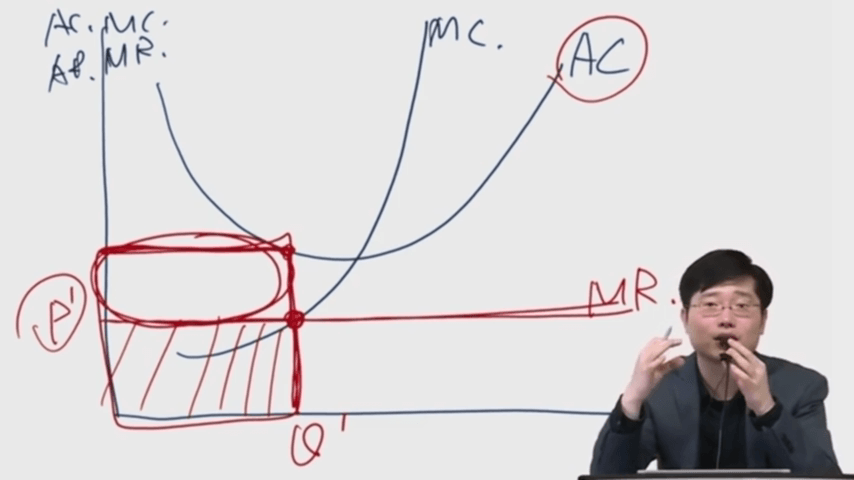 AC. MC.
AR. MR.
MC.
AC
P'
MR.
Q'